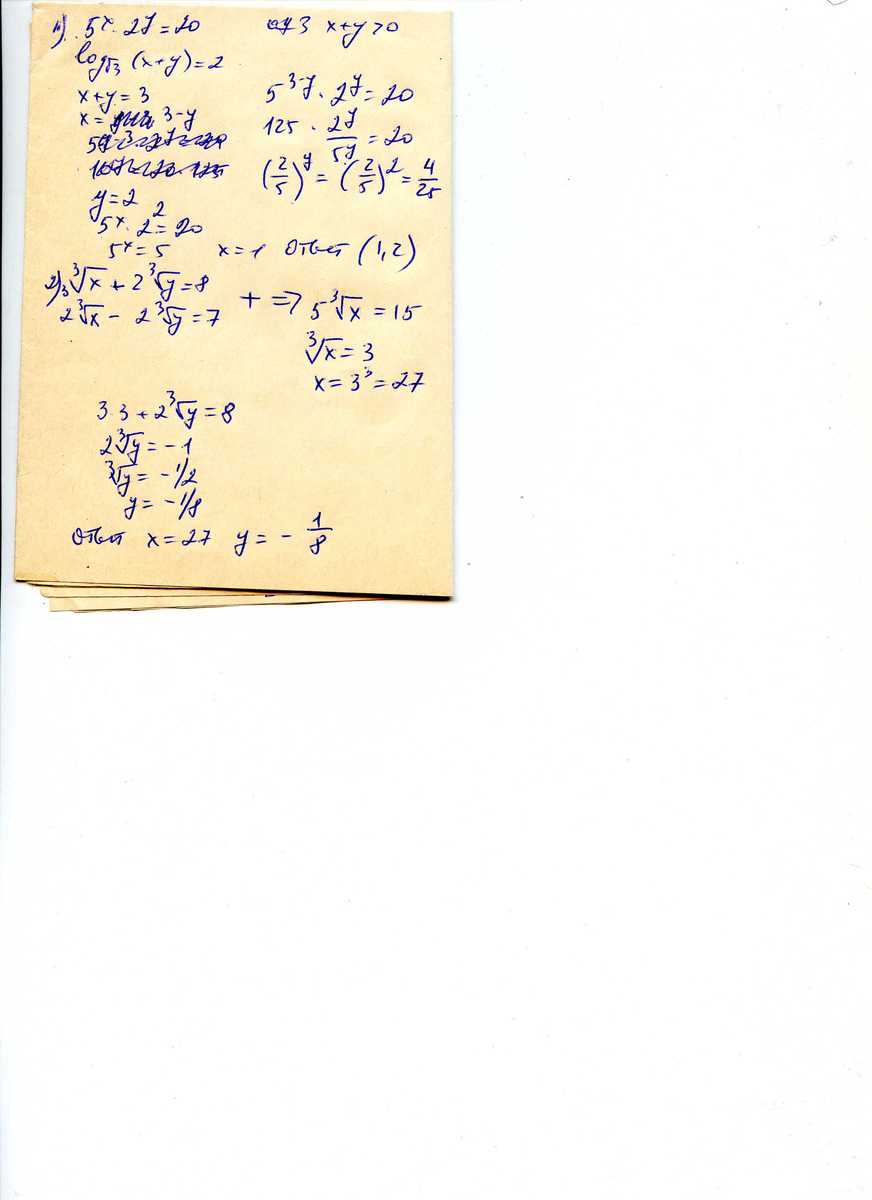 1) 5^x · 2^y = 20 ОДЗ x+y>0
log_√3 (x+y) = 2
x+y = 3
x = 3-y
5^(3-y) · 2^y = 20
125 · 2^y/5^y = 20
(2/5)^y = (2/5)^2 = 4/25
y = 2
5^x · 2^2 = 20
5^x = 5 x = 1 Ответ (1,2)
2) 3∛x + 2∛y = 8
2∛x - 2∛y = 7
+ => 5∛x = 15
∛x = 3
x = 3^3 = 27
3·3 + 2∛y = 8
2∛y = -1
∛y = -1/2
y = -1/8
Ответ x = 27 y = - 1/8